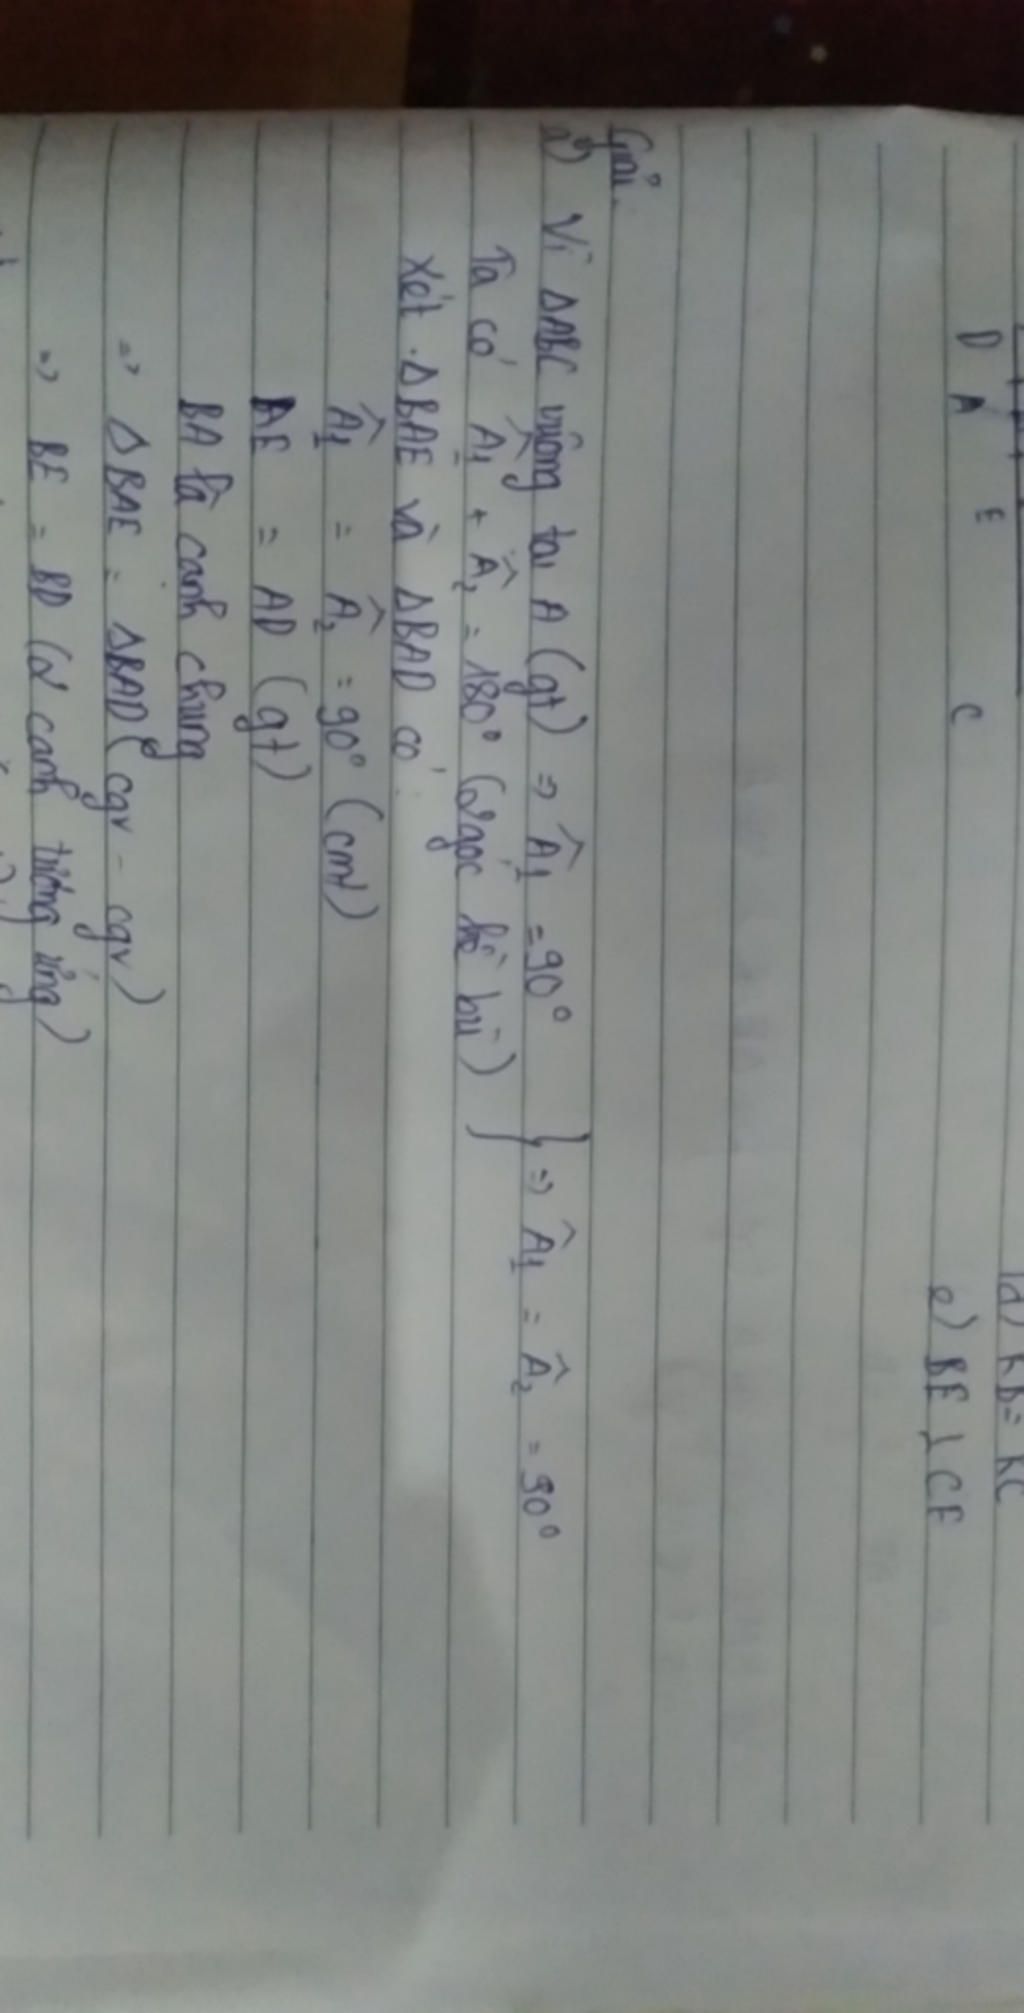 d) KB = KC
D A E C
e) BE ⊥ CF
Giải.
a) Vì ΔABC vuông tại A (gt) => Â₁ = 90°
Ta có Â₁ + Â₂ = 180° (2 góc kề bù) } => Â₁ = Â₂ = 90°
Xét ΔBAE và ΔBAD có:
Â₁ = Â₂ = 90° (cmt)
AE = AD (gt)
BA là cạnh chung
=> ΔBAE = ΔBAD (cgv - cgv)
=> BE = BD (2 cạnh tương ứng)